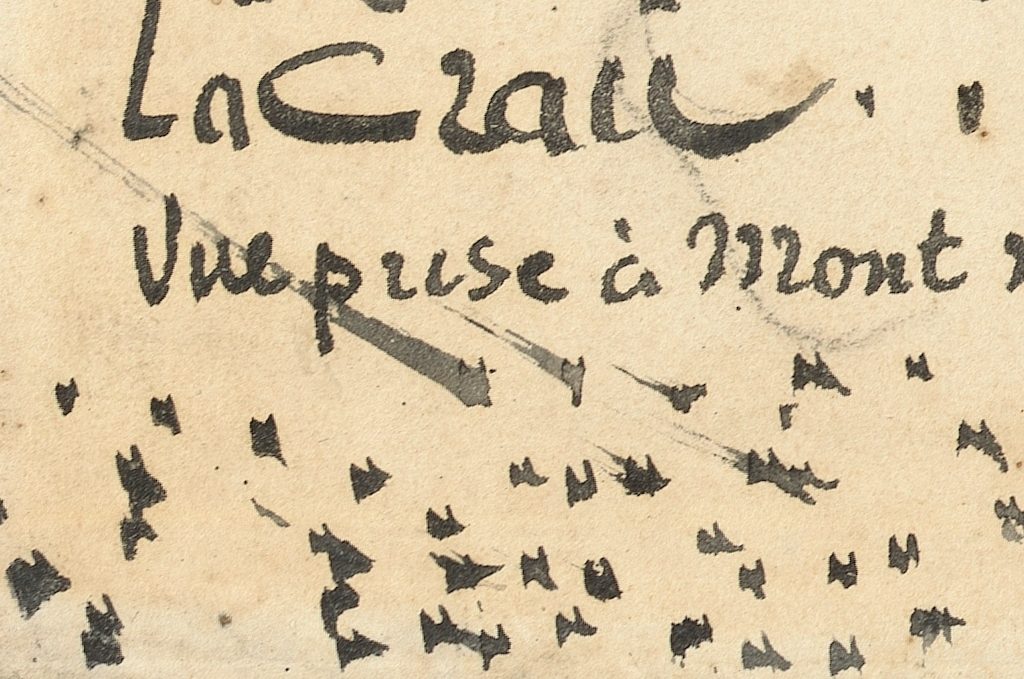 La Crau
Vue prise à Mont